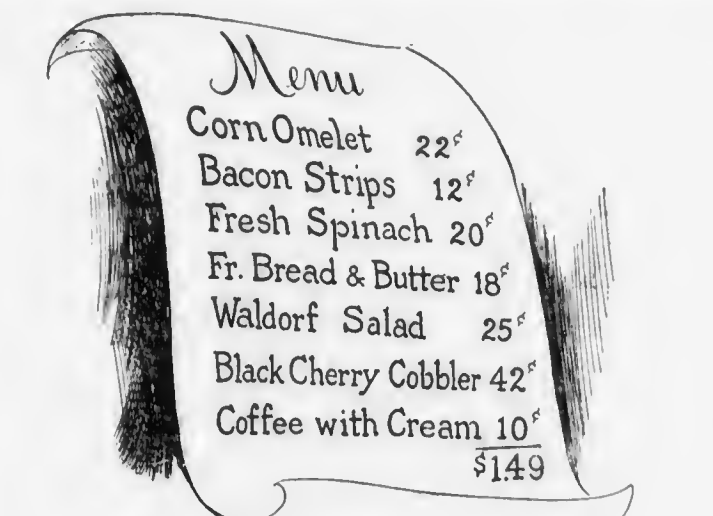 Menu
Corn Omelet 22¢
Bacon Strips 12¢
Fresh Spinach 20¢
Fr. Bread & Butter 18¢
Waldorf Salad 25¢
Black Cherry Cobbler 42¢
Coffee with Cream 10¢
$1.49